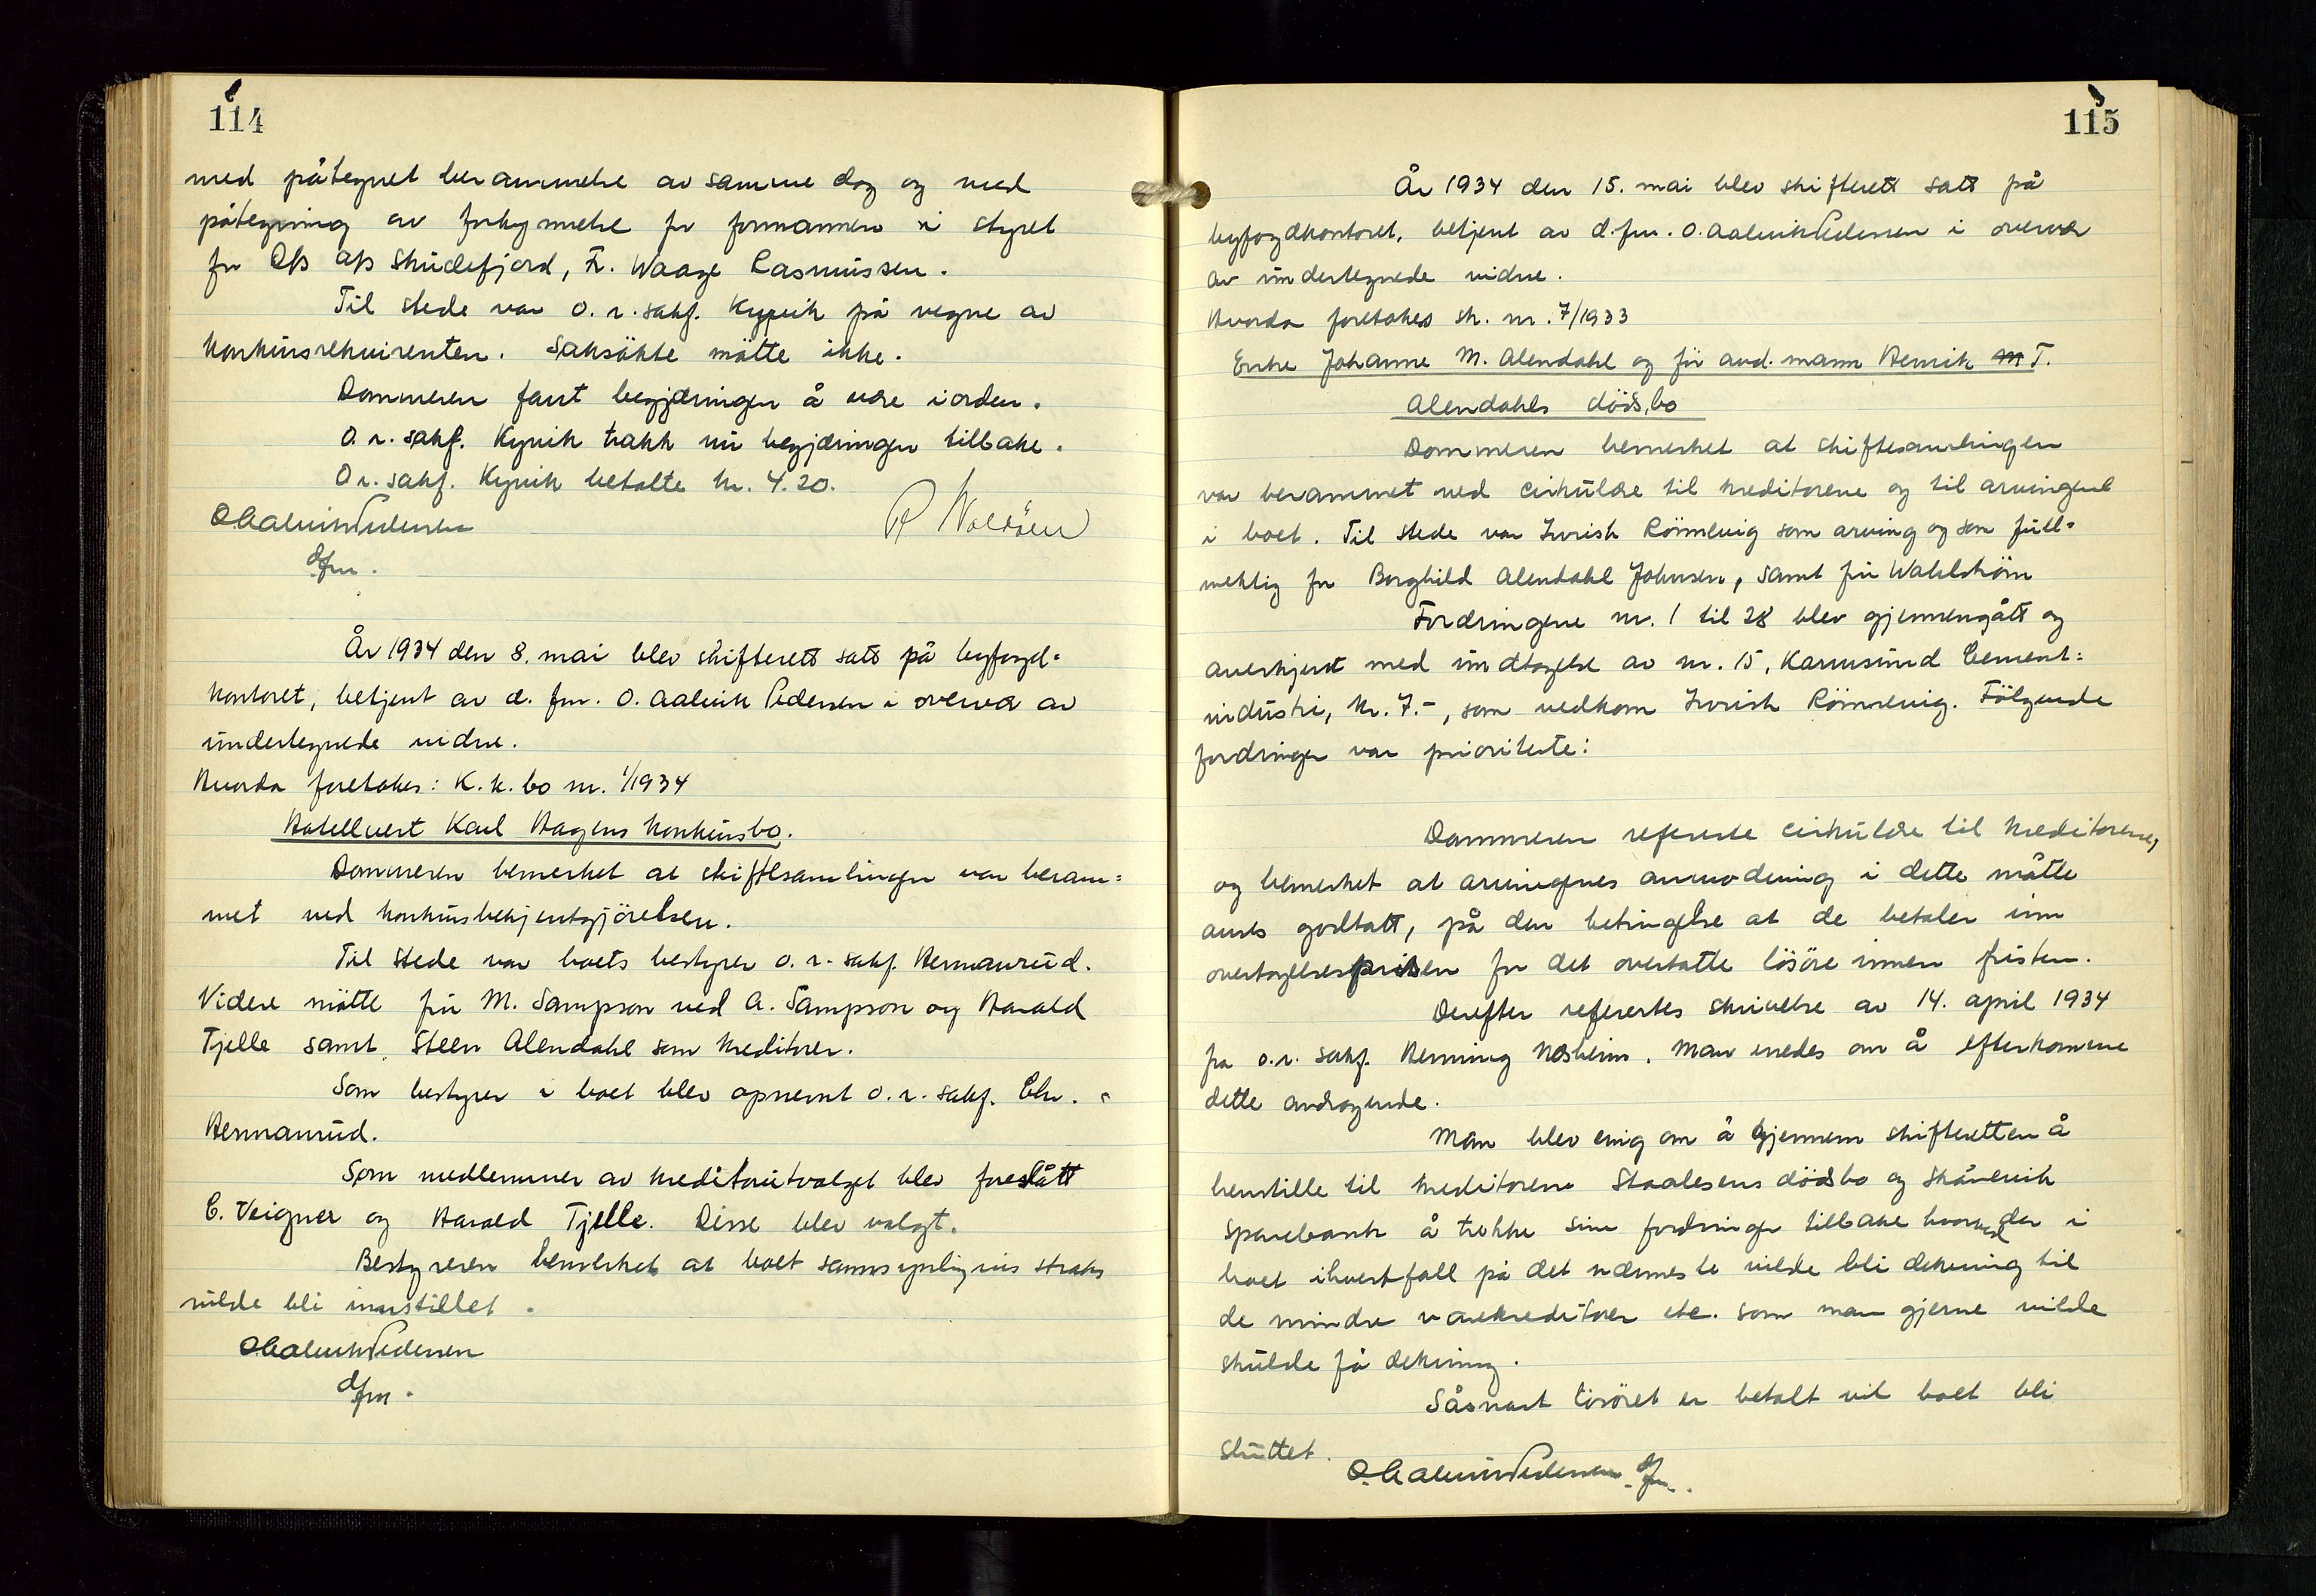 114
med påtegnet berammelse av samme dag og med
påtegning av forkynnelse for formannen i styret
for D/s A/s Skudefjord, Fr. Waage Rasmussen.
Til stede var o. r. sakf. Kyvik på vegne av
konkursrekvirenten. Saksökte mötte ikke.
Dommeren fant begjæringen å være iorden.
O. r. sakf. Kyvik trakk nu begjæringen tilbake.
O r. sakf. Kyvik betalte kr. 4.20.
O Aalvik Pedersen
dfm.
År 1934 den 8. mai blev skifterett satt på byfogd=
kontoret, betjent av d. fm. O. Aalvik Pedersen i overvær av
undertegnede vidne.
Hvorda foretokes: K. k. bo nr. 1/1934
Hotellvert Karl Hagens konkursbo.
Dommeren bemerket at skiftesamlingen var beram=
met ved konkursbekjentgjörelsen.
Til stede var boets bestyrer o. r. sakf. Hermanrud.
Videre mötte fru M. Sampson ved A. Sampson og Harald
Tjelle samt Steen Alendahl som kreditorer.
Som bestyrer i boet blev opnevnt o. r. sakf. Chr.
Hermanrud.
Som medlemmer av kreditorutvalget blev foreslått
C. Veigner og Harald Tjelle. Disse blev valgt.
Bestyreren bemerket at boet sannsynligvis straks
vilde bli innstillet.
O Aalvik Pedersen
dfm.
115
År 1934 den 15. mai blev skifterett satt på
byfogdkontoret, betjent av d. fm. O. Aalvik Pedersen i overvær
av undertegnede vidne.
Hvorda foretokes sk. nr. 7/1933
Enke Johanne M. Alendahl og för avd. mann Henrik M T.
Alendahls dödsbo
Dommeren bemerket at skiftesamlingen
var berammet ved cirkulære til kreditorene og til arvingene
i boet. Til stede var Jurist Römmevig som arving og som full=
mektig for Borghild Alendahl Johnsen, samt fru Wahlström
Fordringene nr. 1 til 28 blev gjennemgått og
anerkjent med undtagelse av nr. 15, Karmsund Cement=
industri, kr. 7.-, som vedkom Jurist Römmevig. Fölgende
fordringer var prioriterte:
Dommeren refererte cirkulære til kreditorene,
og bemerket at arvingenes anmodning i dette måtte
anses godtatt, på den betingelse at de betaler inn
overtagelsesprisen for det overtatte lösöre innen fristen.
Derefter refertes skrivelse av 14. april 1934
fra o.r. sakf. Henning Næsheim. Man enedes om å efterkomme
dette andragende.
Man blev enig om å gjennem skifteretten å
henstille til kreditorene Staalesens dödsbo og Skånevik
Sparebank å trekke sine fordringer tilbake hvorved der i
boet ihvertfall på det nærmeste vilde bli dekning til
de mindre varekreditorer etc. som man gjerne vilde
skulde få dekning.
Såsnart lösöret er betalt vil boet bli
sluttet.
O Aalvik Pedersen dfm.